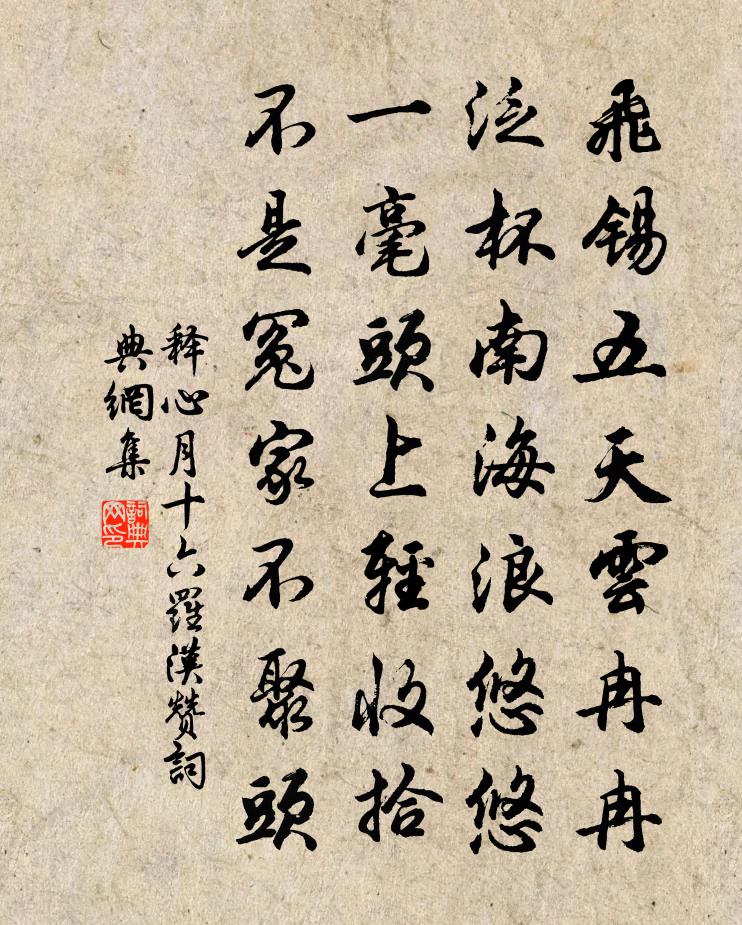 飛錫五天雲冉冉
泛杯南海浪悠悠
一毫頭上輕收拾
不是冤家不聚頭
释心月十六羅漢赞詞
典網集
詞典
网印